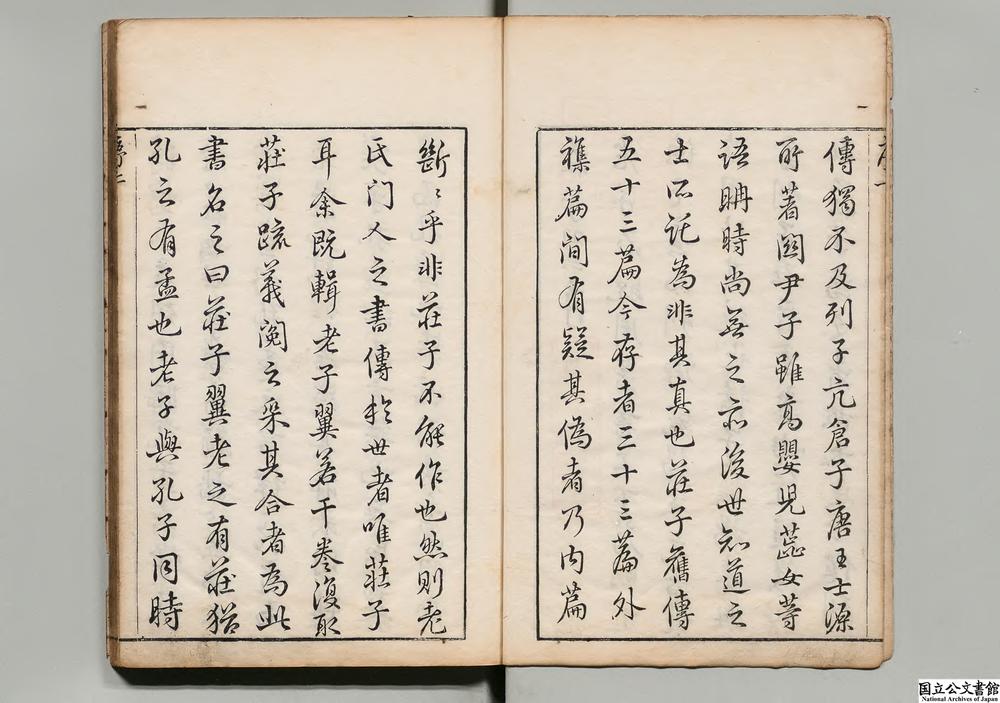 傳獨不及列子亢倉子唐王士源
所著關尹子雖高嬰兒蕊女等
語聃時尚無之亦後世知道之
士所託為非其真也莊子舊傳
五十三篇今存者三十三篇外
襍篇間有疑其偽者乃内篇
斷〻乎非莊子不能作也然則老
氏门人之書傳於世者唯莊子
耳余既輯老子翼若干卷復取
莊子疏義閱之采其合者為此
書名之曰莊子翼老之有莊猶
孔之有孟也老子與孔子同時
国立公文書館
National Archives of Japan